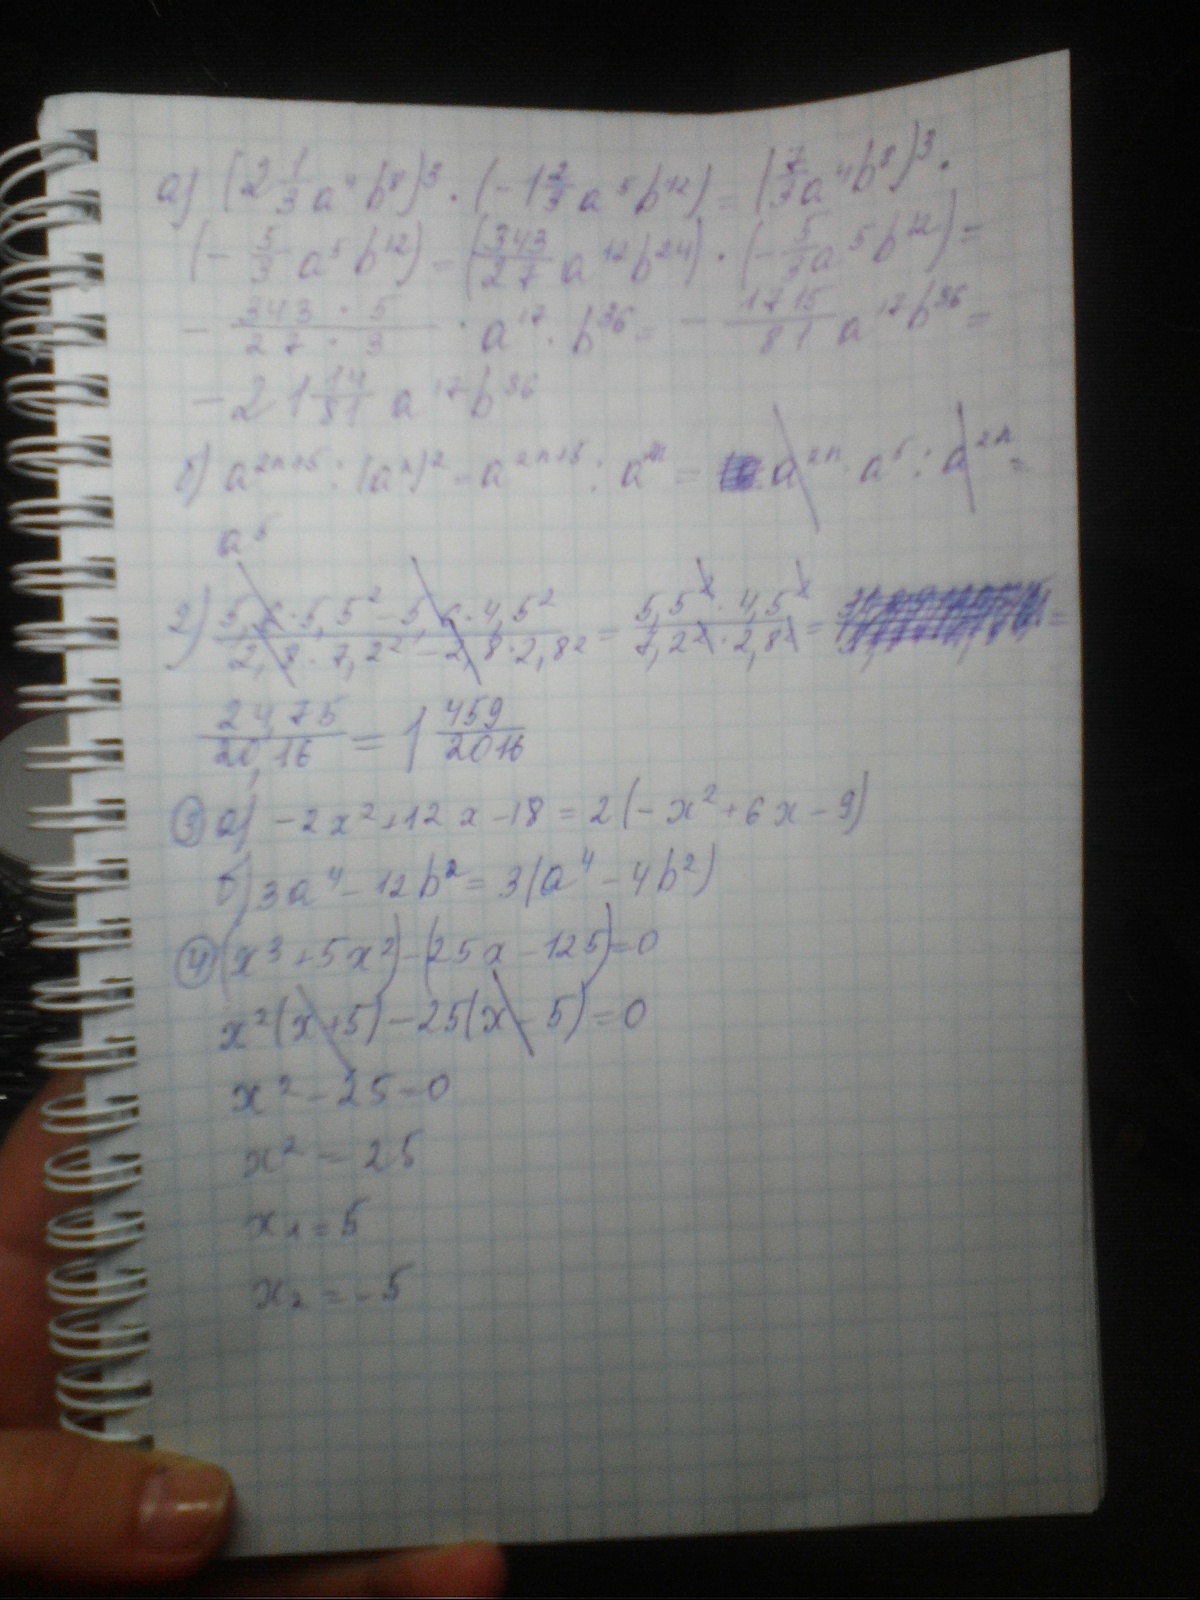 а) (2 1/3 a⁴ b⁸)³ · (-1 2/3 a⁵ b¹²) = (7/3 a⁴ b⁸)³ ·
(- 5/3 a⁵ b¹²) = (343/27 a¹² b²⁴) · (- 5/3 a⁵ b¹²) =
- (343 · 5)/(27 · 3) · a¹⁷ · b³⁶ = - 1715/81 a¹⁷ b³⁶ =
- 21 14/81 a¹⁷ b³⁶
б) a²ⁿ⁺⁵ : (aⁿ)² = a²ⁿ⁺⁵ : a²ⁿ = a²ⁿ · a⁵ : a²ⁿ =
a⁵
2) (5,6 · 5,5² - 5,6 · 4,5²)/(2,8 · 7,2² - 2,8 · 2,8²) = (5,5² · 4,5²)/(7,2² · 2,8²) = =
24,75/20,16 = 1 459/2016
③ а) -2x² + 12x - 18 = 2(-x² + 6x - 9)
б) 3a⁴ - 12b² = 3(a⁴ - 4b²)
④ (x³ + 5x²) - (25x - 125) = 0
x²(x + 5) - 25(x - 5) = 0
x² - 25 = 0
x² = 25
x₁ = 5
x₂ = -5